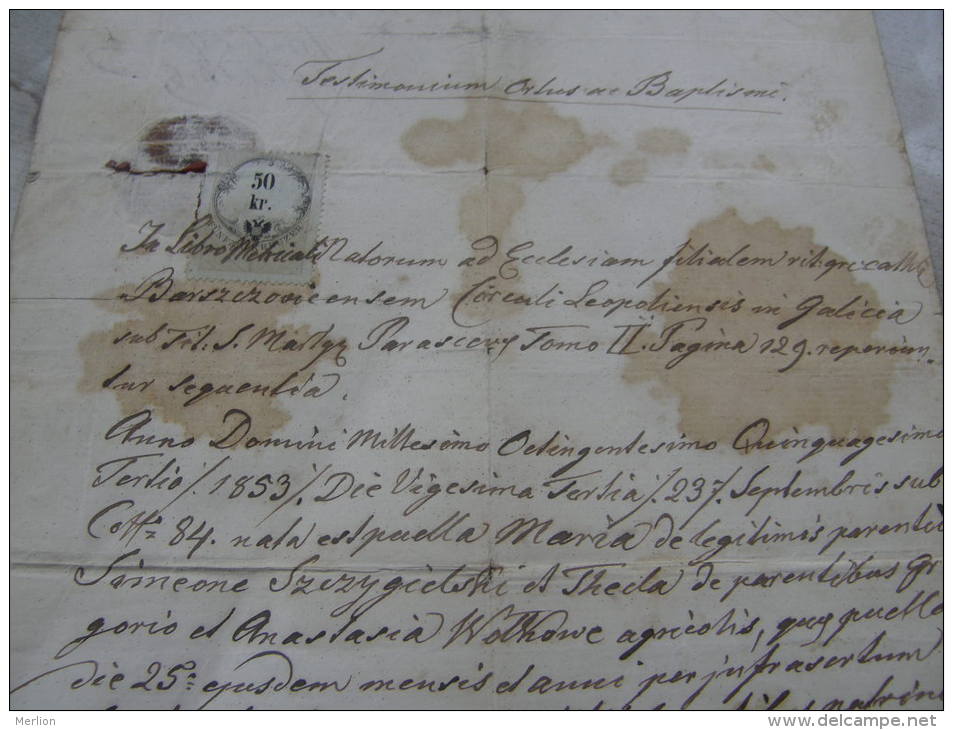 Testimonium Ortus ac Baptismi.
50
kr.
In Libro Metricali Natorum ad Ecclesiam filialem rit: grec: cath:
Barszczoviceensem Circuli Leopoliensis in Galicia
sub Tit: S. Martyr Parascevy Tomo II. Pagina 129. reperiun-
tur sequentia.
Anno Domini Millesimo Octingentesimo Quinquagesimo
Tertio /.1853/. Die Vigesima Tertia /.23/. Septembris sub
84. nata est puella Maria de legitimis parenti
Simeone Szczygielski et Thecla de parentibus Gr
gorio et Anastasia Wolkowe agricolis, quae puella
die 25a ejusdem mensis et anni per infrasertum
patrin
Merlion
www.delcampe.net